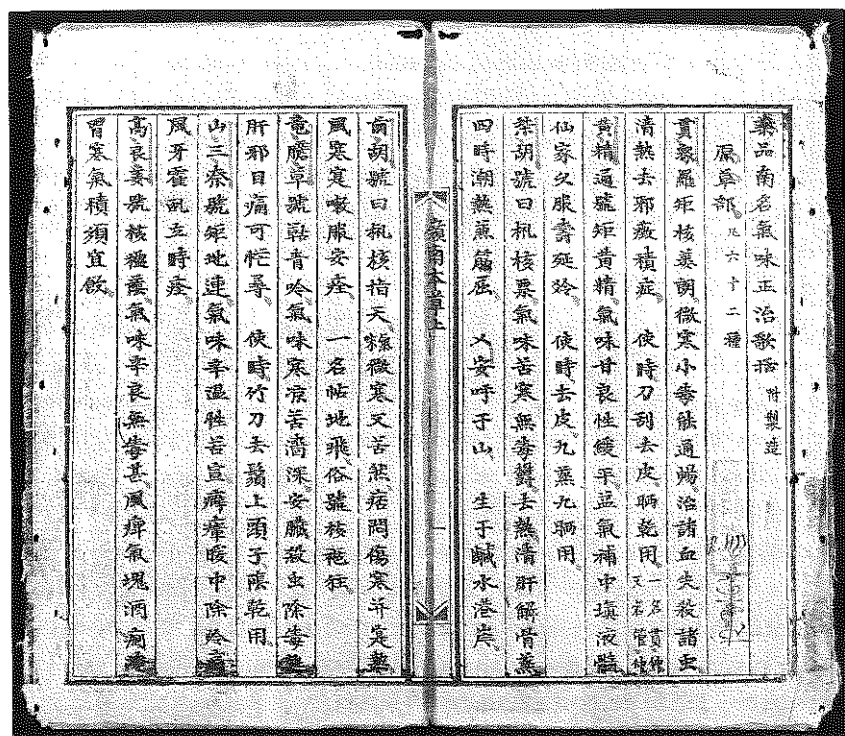 藥品南名氣味正治歌括 附製造
原草部 凡六十二種
貫衆羅矩核蔞 微寒小毒能通暢治諸血失殺諸虫
清熱去邪癥積症 使時刀刮去皮晒乾用 一名貫仲 又名管仲
黃精逼號矩黃精氣味甘良性緩平益氣補中填液髓
仙家久服壽延齡 使時去皮九蒸九晒用
柴胡號曰 核栗氣味苦寒無毒 去熱清肝解骨蒸
四時潮熱 筋屈 乂安呼子山 生于鹹水港岸
嶺南本草上
一
前胡號曰 核指天 微寒又苦 痞悶傷寒并
風寒 嗽服安痊 一名帖地飛俗號核 狂
竜膽草號 青吟氣味寒凉苦濇深安臟殺虫除毒
肝邪目痛可忙尋 使時竹刀去鬚上頭子陰乾用
山三柰號矩地連氣味辛溫 苦宣 瘴 中除冷
風牙霍乱立時痊
高良姜號核 氣味辛良無毒甚風痺氣塊酒
胃寒氣積須宜飲